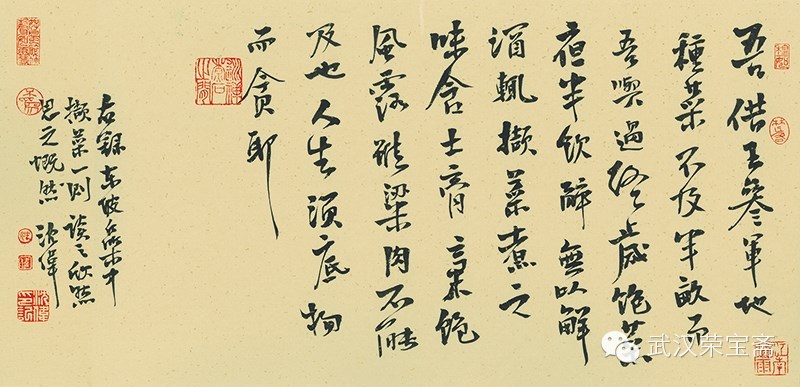 吾借王參軍地
種菜不及半畝而
吾與過終歲飽菜
夜半飲醉無以解
酒輒擷菜煮之
味含土膏氣飽
風露雖粱肉不能
及也人生須底物
而貪耶
右錄東坡
擷菜一則讀之欣然
思之慨然 沈偉
武汉荣宝斋